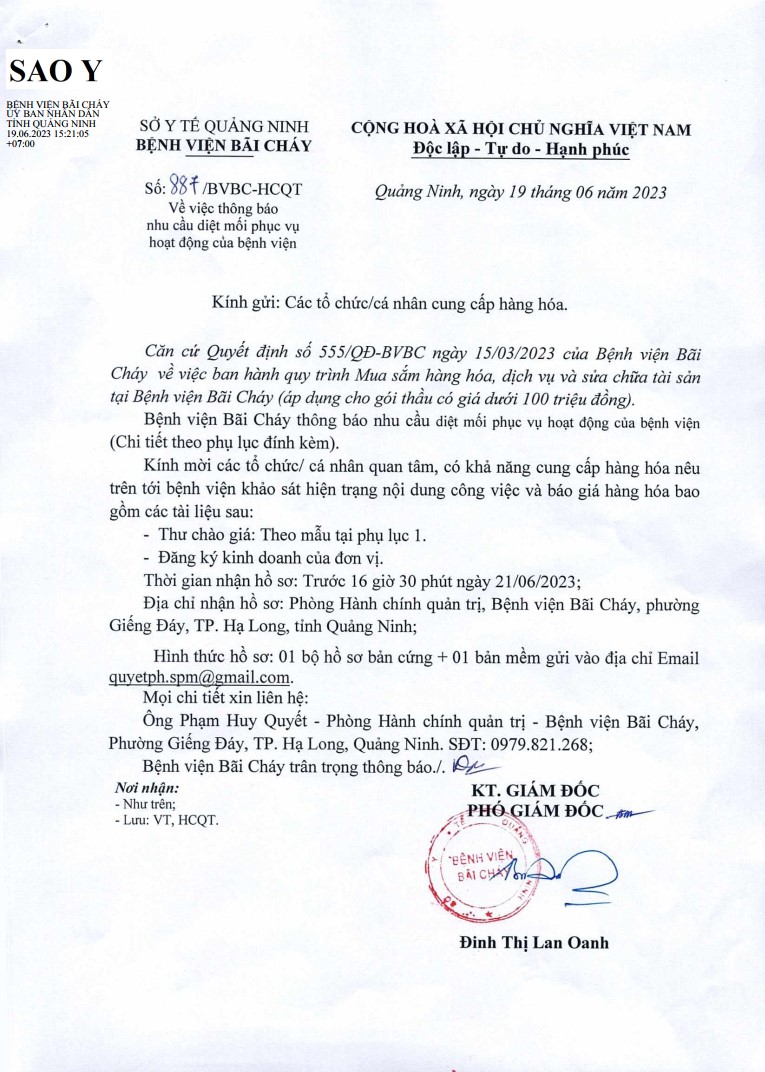 SAO Y
BỆNH VIỆN BÃI CHÁY
UỶ BAN NHÂN DÂN
TỈNH QUẢNG NINH
19.06.2023 15:21:05
+07:00
SỞ Y TẾ QUẢNG NINH
BỆNH VIỆN BÃI CHÁY
CỘNG HOÀ XÃ HỘI CHỦ NGHĨA VIỆT NAM
Độc lập - Tự do - Hạnh phúc
Số: 887/BVBC-HCQT
Về việc thông báo
nhu cầu diệt mối phục vụ
hoạt động của bệnh viện
Quảng Ninh, ngày 19 tháng 06 năm 2023
Kính gửi: Các tổ chức/cá nhân cung cấp hàng hóa.
Căn cứ Quyết định số 555/QĐ-BVBC ngày 15/03/2023 của Bệnh viện Bãi
Cháy về việc ban hành quy trình Mua sắm hàng hóa, dịch vụ và sửa chữa tài sản
tại Bệnh viện Bãi Cháy (áp dụng cho gói thầu có giá dưới 100 triệu đồng).
Bệnh viện Bãi Cháy thông báo nhu cầu diệt mối phục vụ hoạt động của bệnh viện
(Chi tiết theo phụ lục đính kèm).
Kính mời các tổ chức/ cá nhân quan tâm, có khả năng cung cấp hàng hóa nêu
trên tới bệnh viện khảo sát hiện trạng nội dung công việc và báo giá hàng hóa bao
gồm các tài liệu sau:
- Thư chào giá: Theo mẫu tại phụ lục 1.
- Đăng ký kinh doanh của đơn vị.
Thời gian nhận hồ sơ: Trước 16 giờ 30 phút ngày 21/06/2023;
Địa chỉ nhận hồ sơ: Phòng Hành chính quản trị, Bệnh viện Bãi Cháy, phường
Giếng Đáy, TP. Hạ Long, tỉnh Quảng Ninh;
Hình thức hồ sơ: 01 bộ hồ sơ bản cứng + 01 bản mềm gửi vào địa chỉ Email
quyetph.spm@gmail.com.
Mọi chi tiết xin liên hệ:
Ông Phạm Huy Quyết - Phòng Hành chính quản trị - Bệnh viện Bãi Cháy,
Phường Giếng Đáy, TP. Hạ Long, Quảng Ninh. SĐT: 0979.821.268;
Bệnh viện Bãi Cháy trân trọng thông báo./.
Nơi nhận:
- Như trên;
- Lưu: VT, HCQT.
KT. GIÁM ĐỐC
PHÓ GIÁM ĐỐC
BỆNH VIỆN
BÃI CHÁY
Đinh Thị Lan Oanh